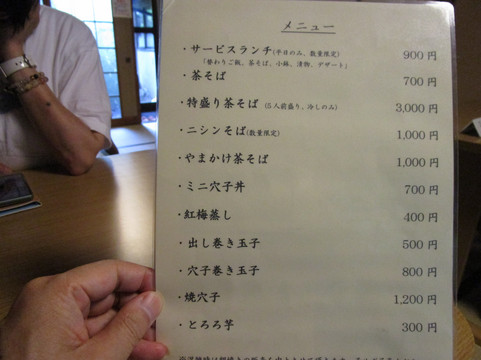 メニュー
・サービスランチ(平日のみ、数量限定) 900円
「替わりご飯、茶そば、小鉢、漬物、デザート」
・茶そば 700円
・特盛り茶そば (5人前盛り、冷しのみ) 3,000円
・ニシンそば(数量限定) 1,000円
・やまかけ茶そば 1,000円
・ミニ穴子丼 700円
・紅梅蒸し 400円
・出し巻き玉子 500円
・穴子巻き玉子 800円
・焼穴子 1,200円
・とろろ芋 300円